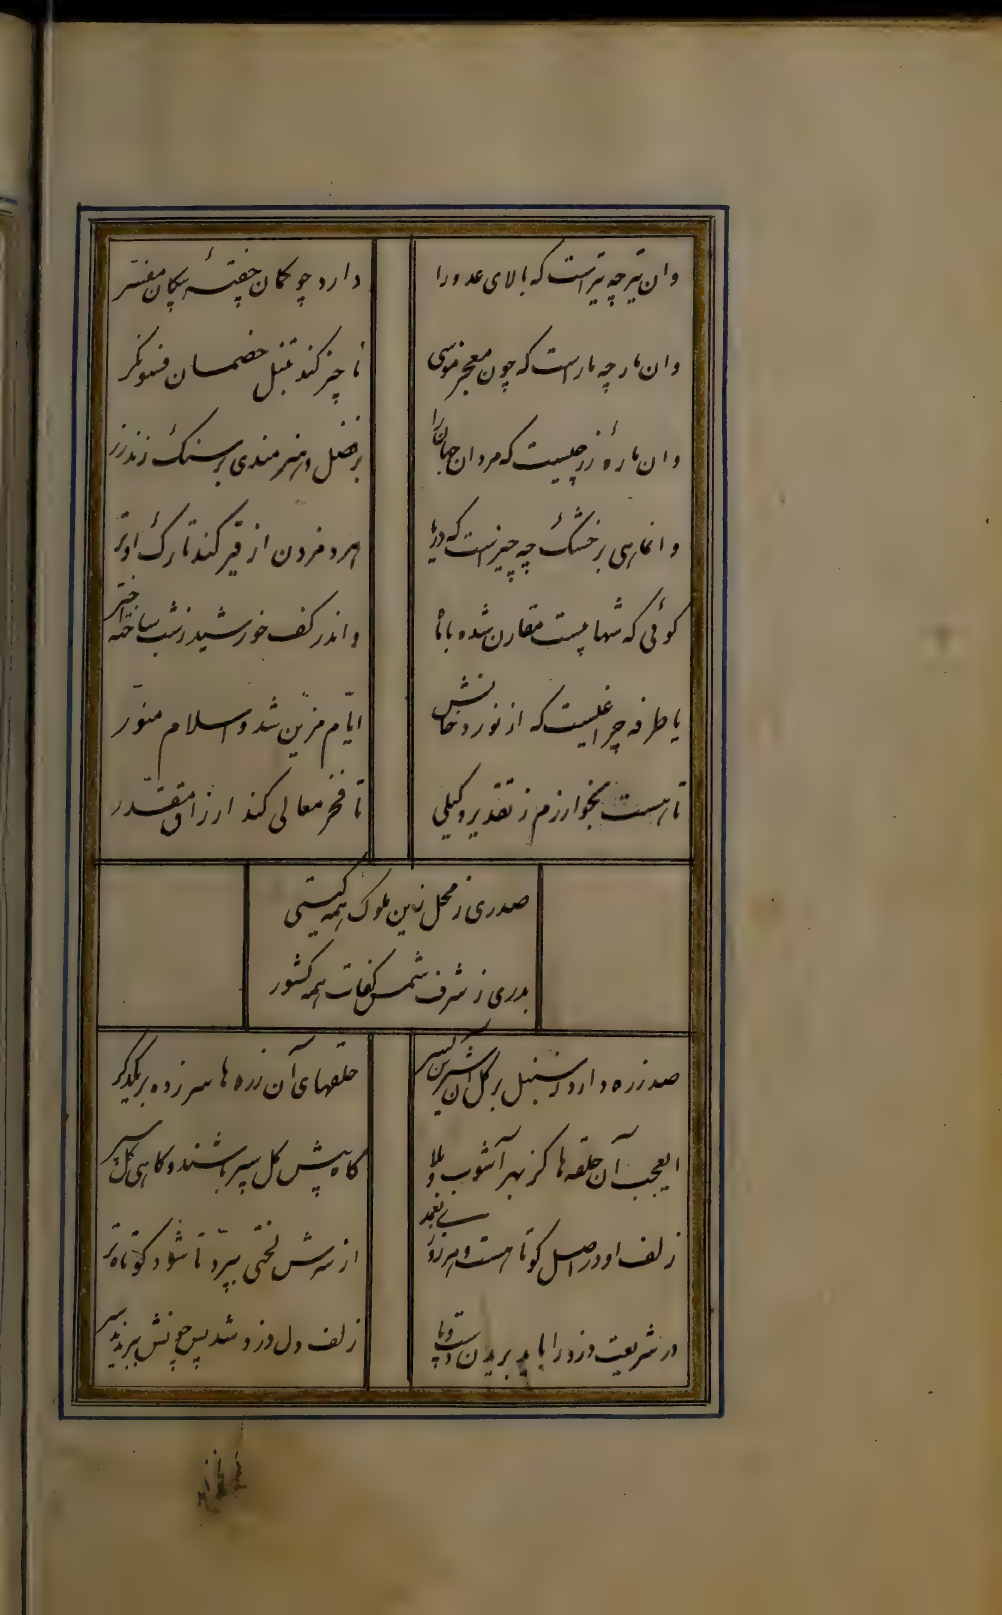 وان تیر چه تیراست که بالای عدو را
دارد چو کمان خفتهٔ پیکان مفتر
وان مار چه مار است که چون معجز موسی
ناچیز کند تنبل خصمان فسونگر
وان مارهٔ زر چیست که مردان جهان را
بر فضل و هنرمندی بر سنک زند زر
وانماهی بر خشک چه چیز است که دریا
از قیر کند تارک او تر
کوئی که شهابیست مقارن شده با ماه
واندر کف خورشید ز شب ساخته اختر
یا طرفه چراغیست که از نور دخانش
ایّام مزیّن شد و اسلام منوّر
تا هست بخوارزم ز تقدیر وکیلی
تا فخر معالی کند ارزاق مقدّر
صدری ز محل زین ملوک همه کیتی
بدری ز شرف شمس کفات همه کشور
صد زره دارد ز سنبل بر کل آن شیرین پسر
حلقهای آن زره ها سر زده بر یکدکر
العجب آن حلقه ها کز بهر آشوب و بلا
کاه پیش کل سپر باشند و کاهی کل سپر
زلف او در اصل کوتا هست و هر روز
از سرش لختی ببرّد تا شود کوتاه تر
در شریعت دزد را باید بریدن دست و پا
زلف دل دزد شد پس چونش ببریدند سر